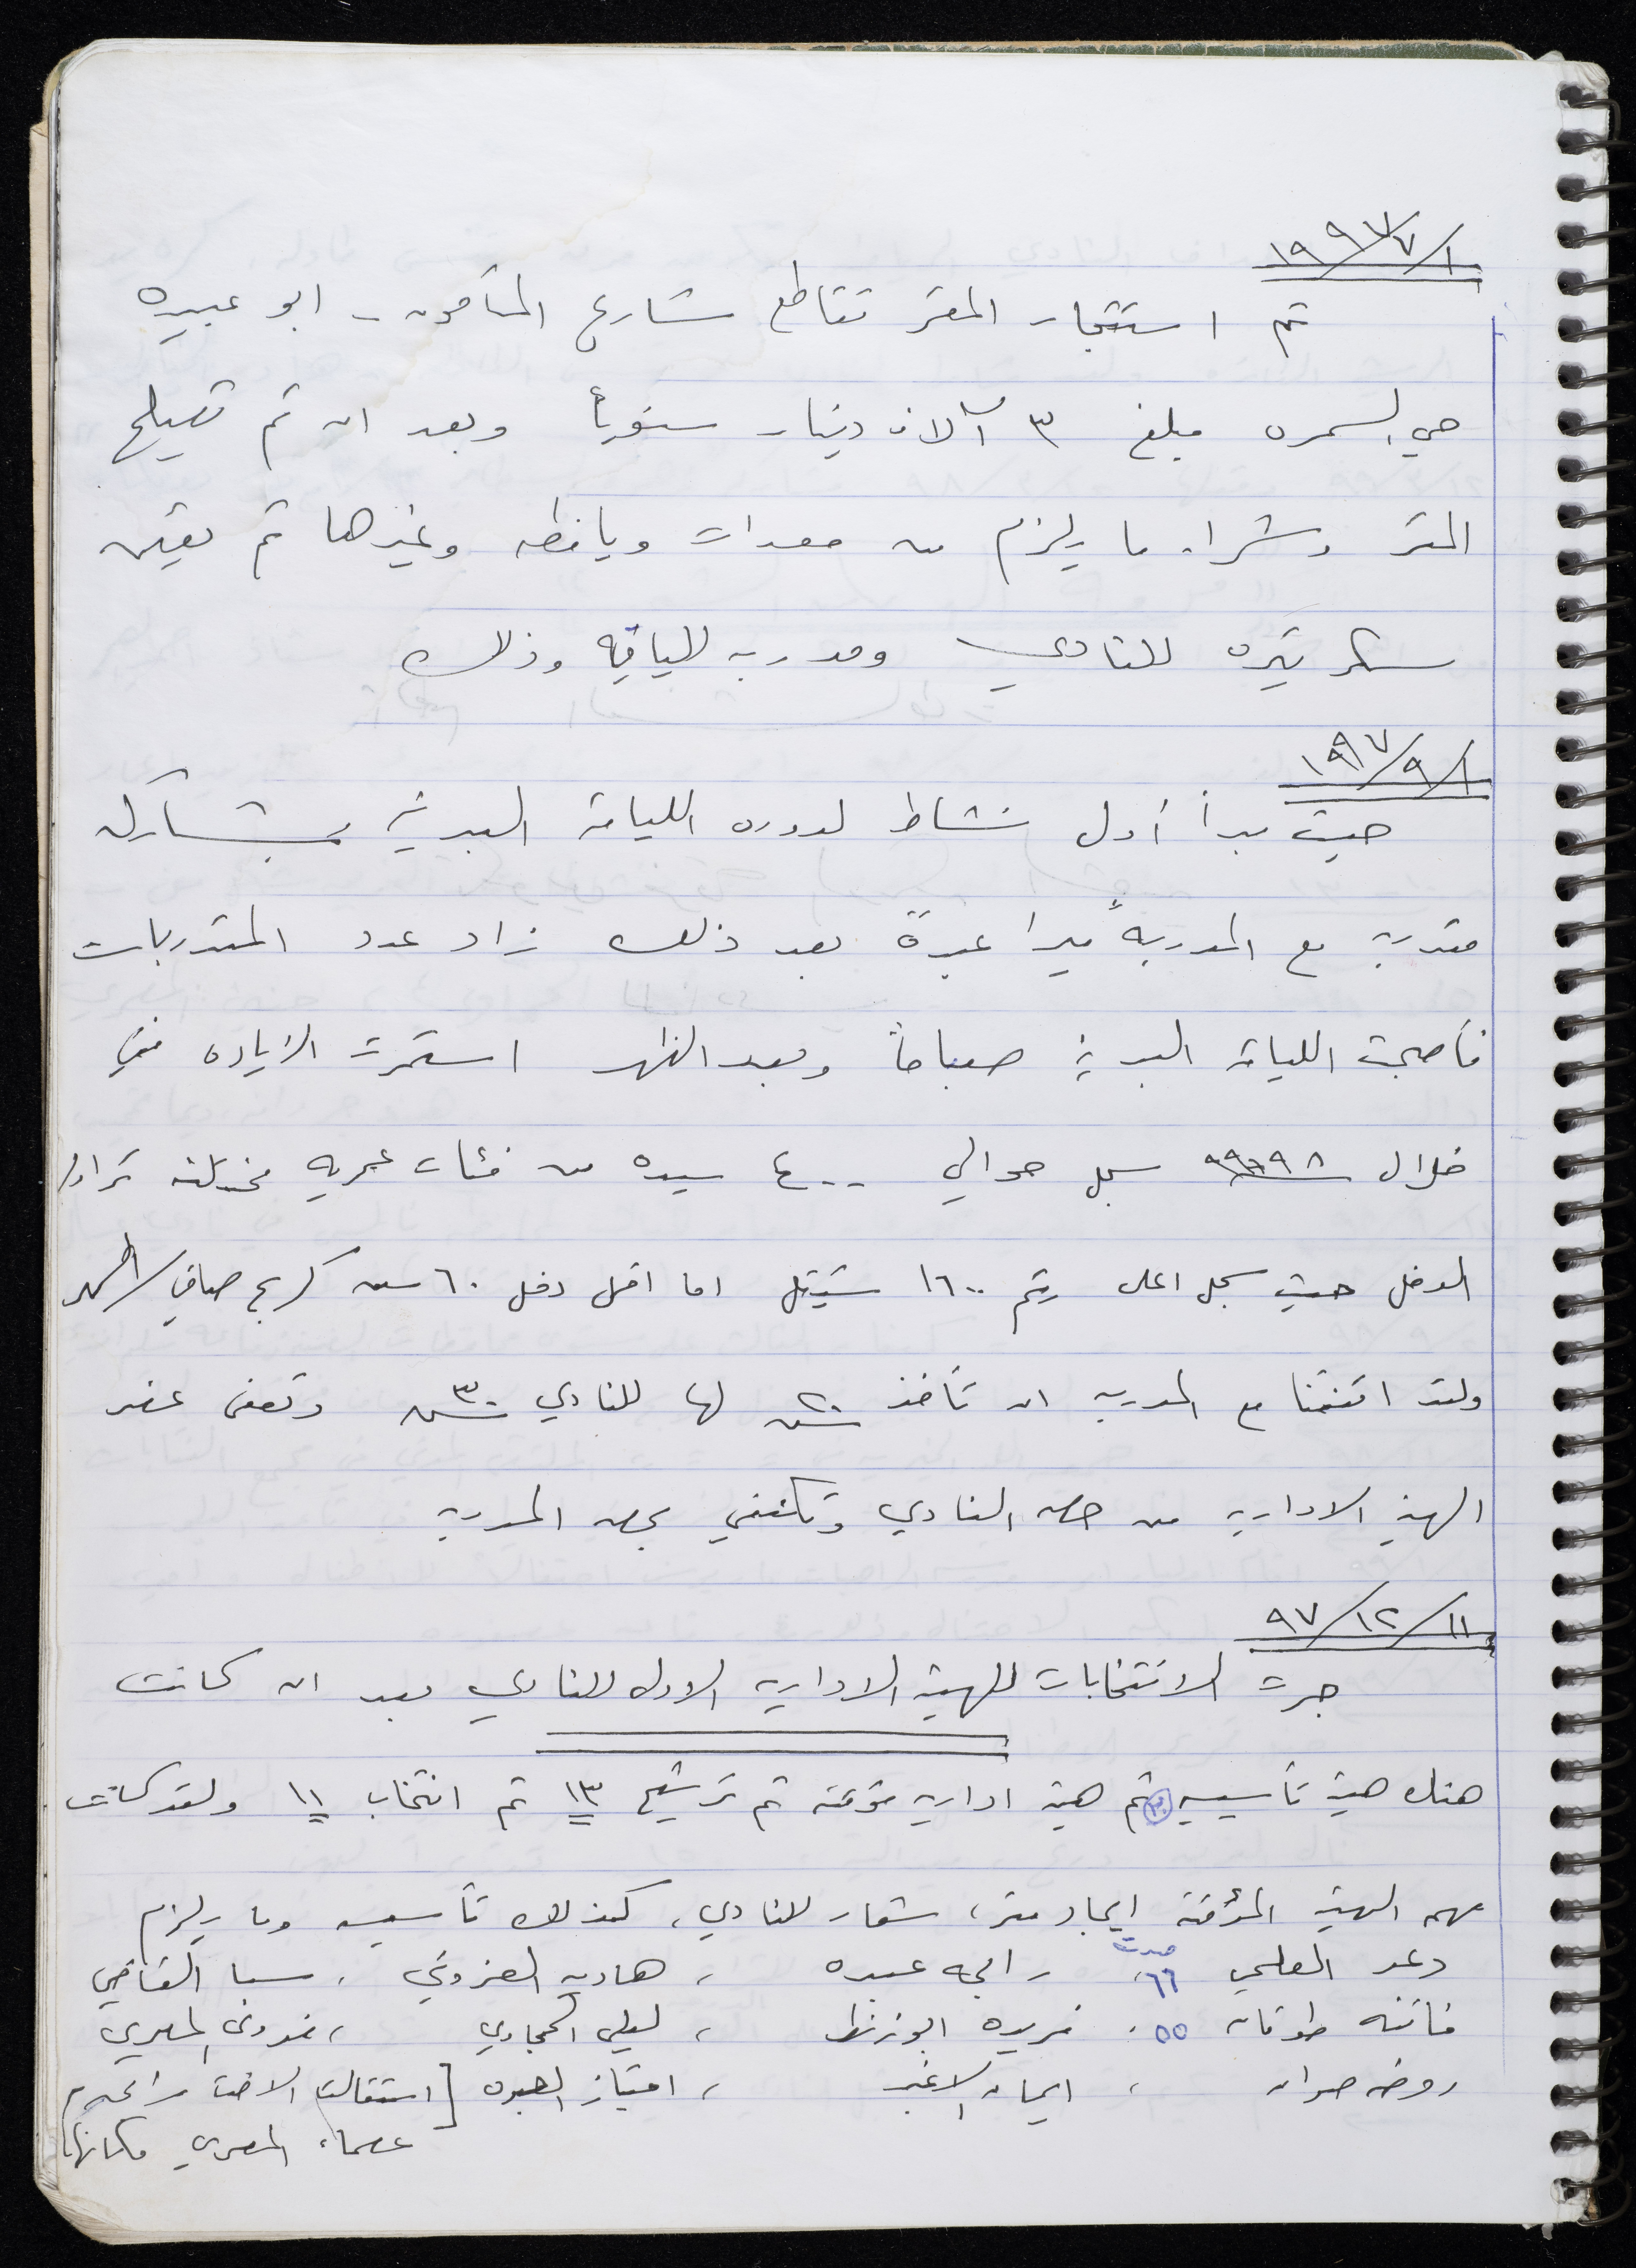 ١٩٩٧/٧/١
تم استئجار المقر تقاطع شارع المأمون - ابو عبيده
حي السمره مبلغ ٣ آلاف دينار سنوياً وبعد ان تم تصليح
المقر وشراء ما يلزم من معدات ويافطه وغيرها تم تعيين
سكرتيره للنادي ومدربه للياقه وذلك
١٩٩٧/٩/١
حيث بدأ أول نشاط لدوره اللياقة البدنية
متدربة مع المدربة ميرا عبدة بعد ذلك زاد عدد المتدربات
فأصبحت اللياقة البدنية صباحاً وبعد الظهر استمرت الزياده ففي
خلال ٩٨ سجل حوالي ٤٠٠ سيده من فئات عمريه مختلفه تزاد
الدخل حيث سجل اعلى رقم ١٦٠٠ شيقل اما اقل دخل ٦٠ ش كربح صافي/الشهر
ولقد اتفقنا مع المدربه ان تأخذ ٢٠ ش لها للنادي ٣٠ ش وتعفى عضو
الهيئة الاداريه من حصه النادي وتكتفي بحصه المدربه
٩٧/١٢/١١
جرت الانتخابات للهيئة الاداريه الاولى للنادي بعد ان كانت
هناك هيئة تأسيسيه ٣٠ ثم هيئة اداريه مؤقته تم ترشيح ١٣ تم انتخاب ١١ ولقد كانت
مهمه الهيئة المؤقتة ايجاد مقر، شعار للنادي، كذلك تأسيسه وما يلزم
دعد العلمي ٦٦ صوت، رابحه عبده ، هاديه العزوني ، سبا القاضي
فاتنه طوقان ٥٥ ، فريده ابو زنط ، ليلى الحجاوي ، فدوى المصري
روضه صوان ، ايمان الاغبر ، امتياز العبوه [استقالت الاخت
عصماء المصري مكانها]